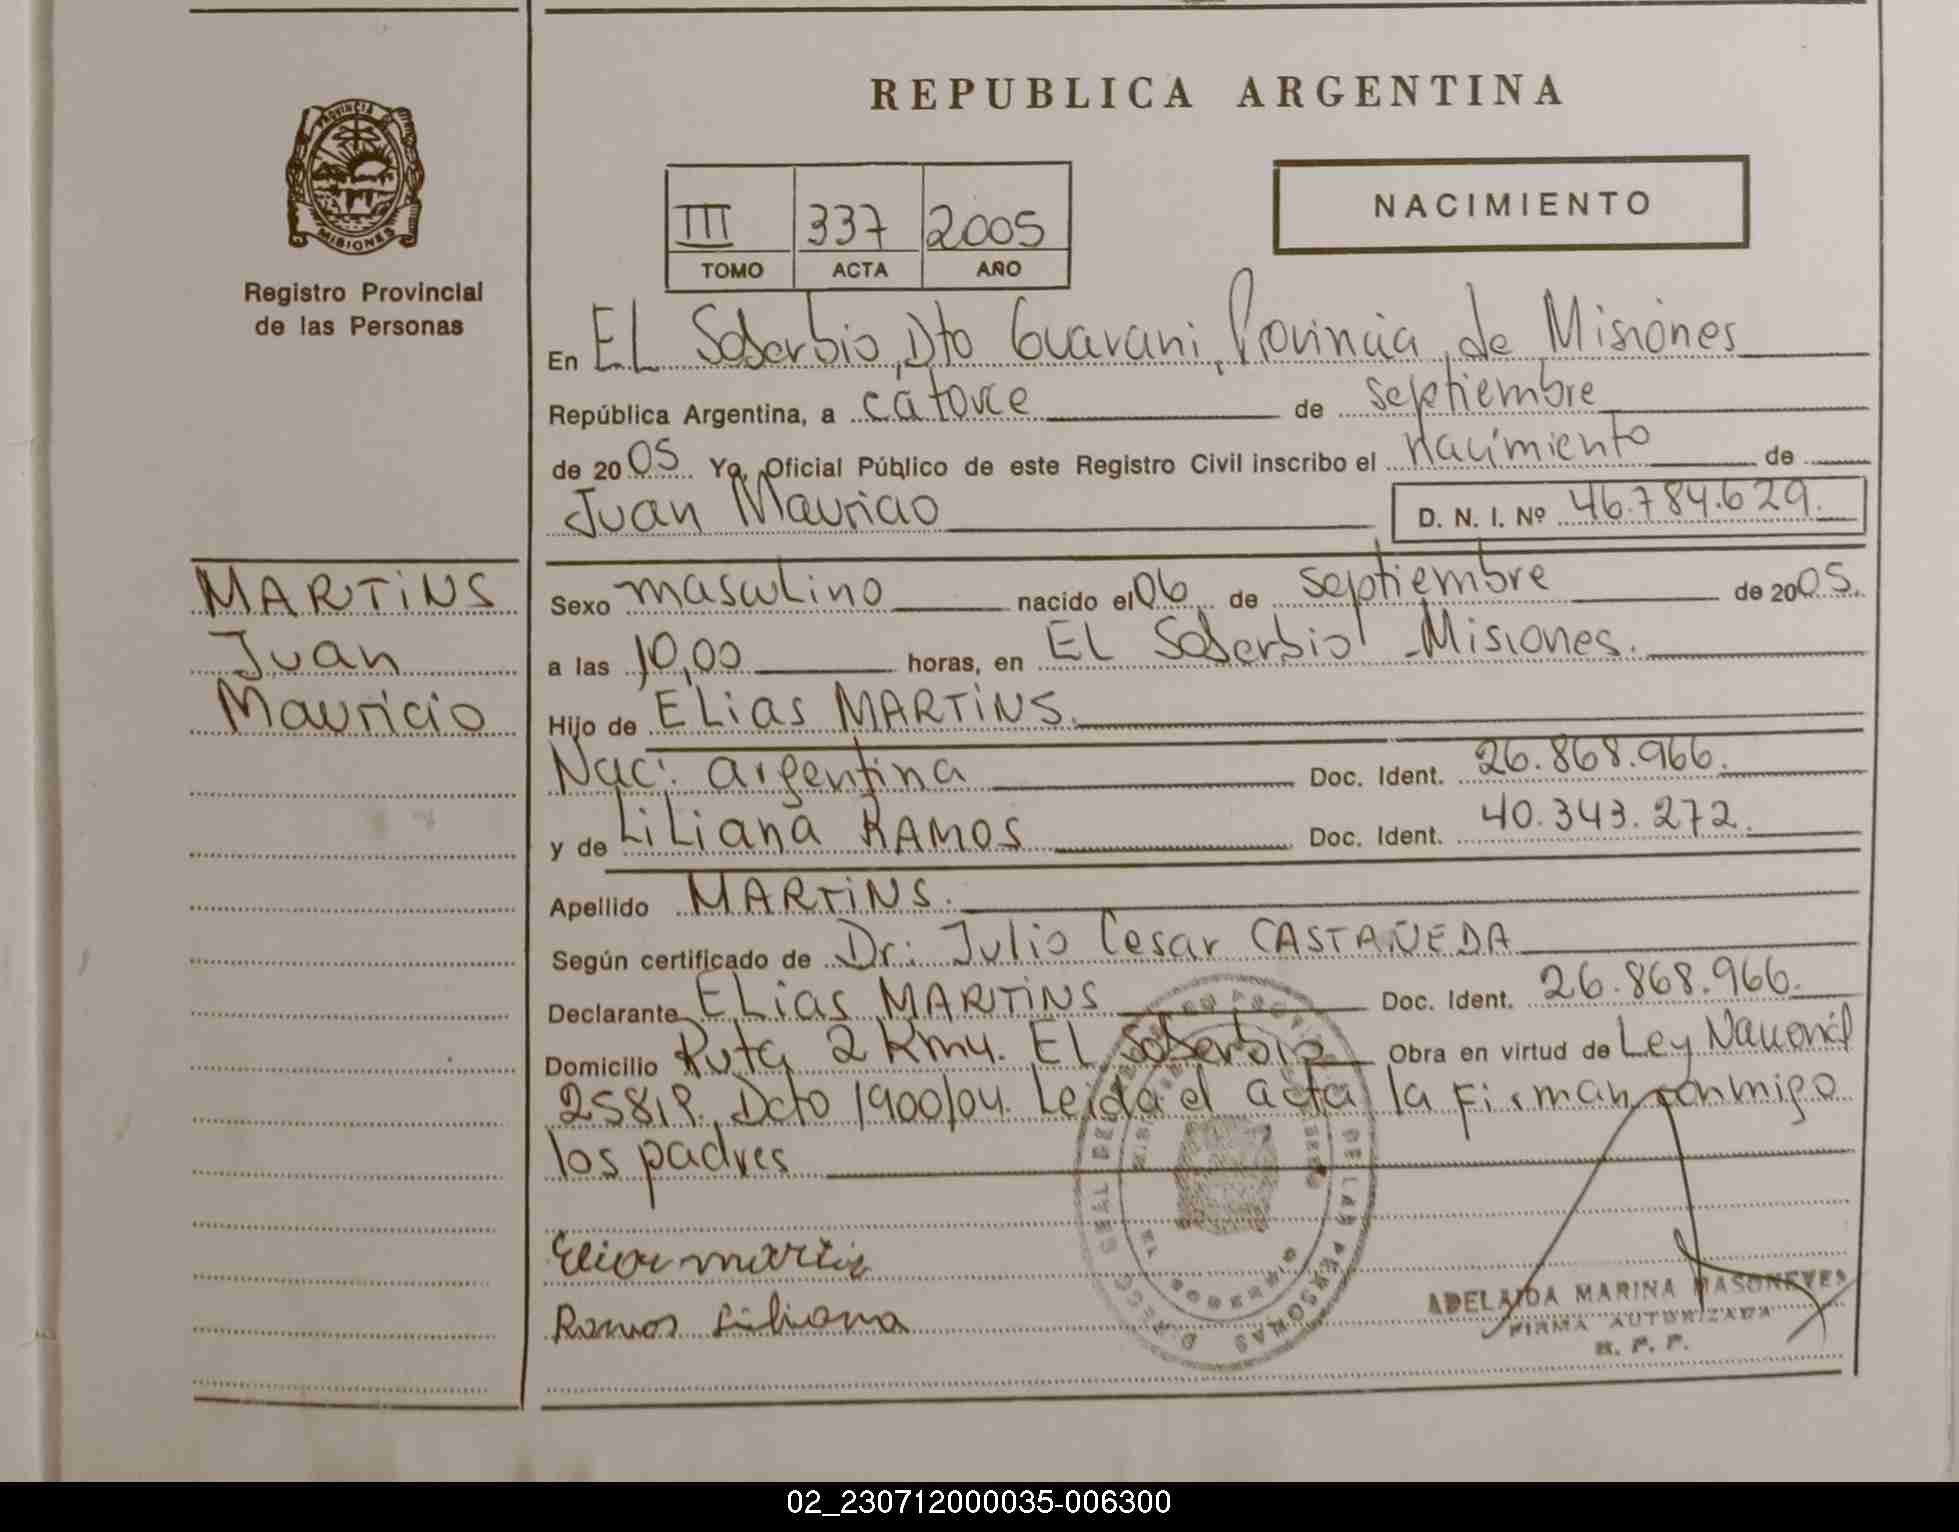 REPUBLICA ARGENTINA
PROVINCIA DE
MISIONES
Registro Provincial
de las Personas
III 337 2005
TOMO ACTA AÑO
NACIMIENTO
En EL Soberbio, Dto Guarani, Provincia de Misiones
República Argentina, a catorce de septiembre
de 2005 Yo, Oficial Público de este Registro Civil inscribo el nacimiento de
Juan Mauricio D. N. I. Nº 46.784.629.
MARTiNS
Juan
Mauricio
Sexo masculino nacido el 06 de septiembre de 2005.
a las 10,00 horas, en EL Soberbio - Misiones.
Hijo de ELias MARTiNS.
Nac: argentina Doc. Ident. 26.868.966.
y de LiLiana RAMOS Doc. Ident. 40.343.272.
Apellido MARTiNS.
Según certificado de Dr: Julio Cesar CASTAÑEDA
Declarante ELias MARTiNS Doc. Ident. 26.868.966.
Domicilio Ruta 2 Km4. EL Soberbio Obra en virtud de Ley Nacional
25819. Dcto 1900/04. Leida el acta la firman conmigo
los padres
Elias martin
Ramos Liliana
DE LAS PERSONAS
ADELAIDA MARINA MASONEVES
FIRMA AUTORIZADA
R. P. P.
02_230712000035-006300